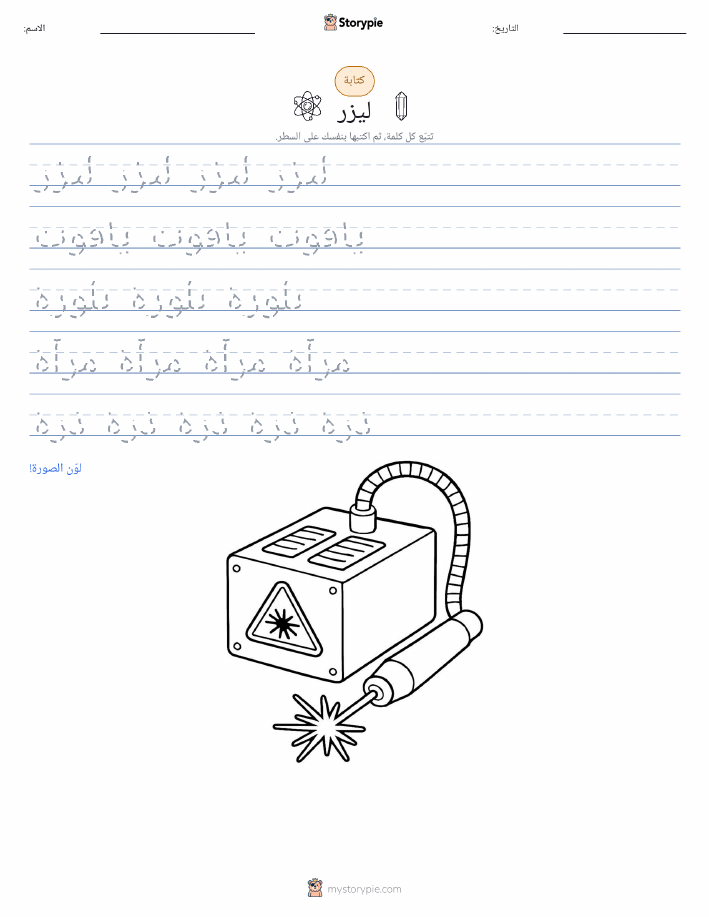 الاسم:
Storypie
التاريخ:
كتابة
ليزر
تتبّع كل كلمة، ثم اكتبها بنفسك على السطر.
ليزر ليزر ليزر ليزر
ياقوت ياقوت ياقوت
بلورة بلورة بلورة
مرآة مرآة مرآة مرآة
ذرة ذرة ذرة ذرة ذرة
لوّن الصورة!
mystorypie.com